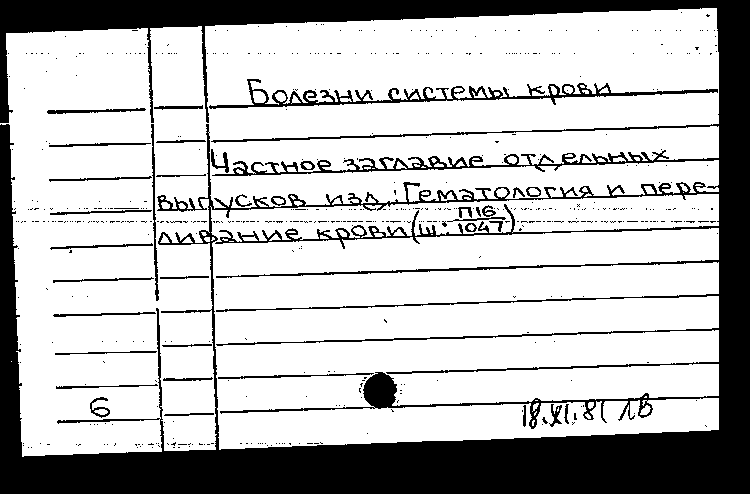 Болезни системы крови
Частное заглавие отдельных
выпусков изд.: Гематология и пере-
ливание крови (Ш: П16/1047).
6
18.XI.81 ЛВ